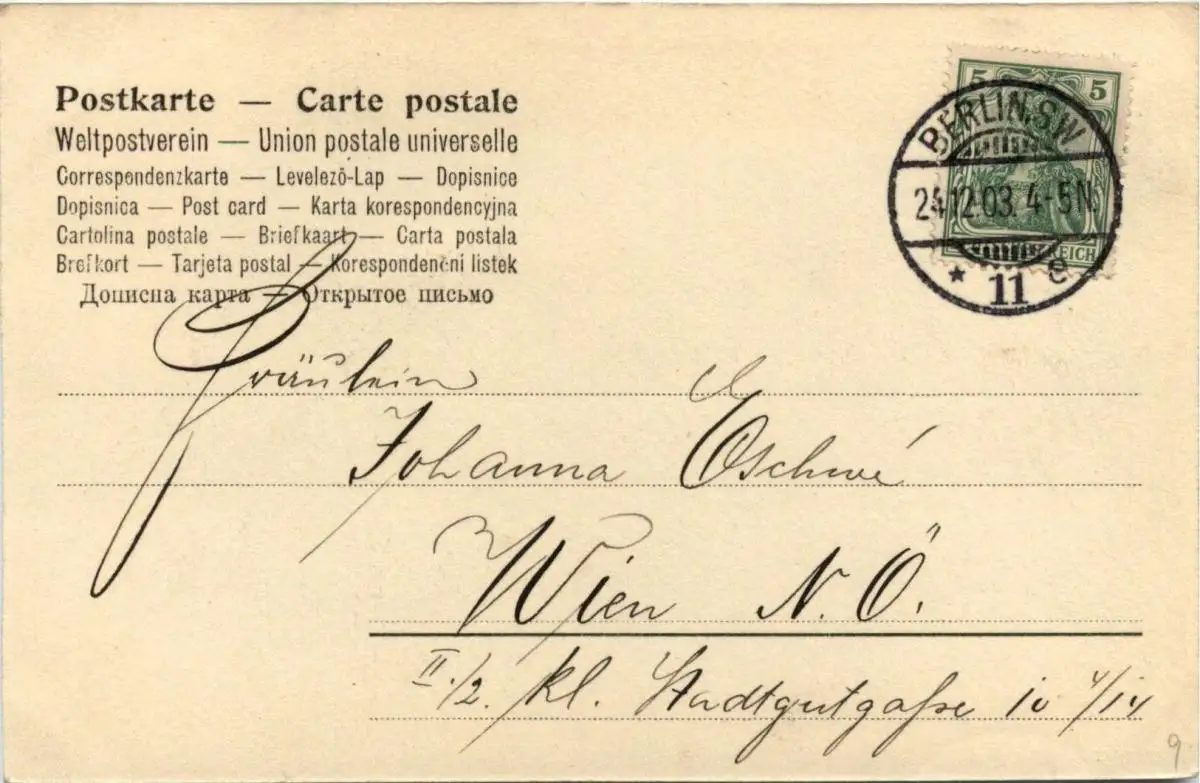 Postkarte — Carte postale
Weltpostverein — Union postale universelle
Correspondenzkarte — Levelező-Lap — Dopisnice
Dopisnica — Post card — Karta korespondencyjna
Cartolina postale — Briefkaart — Carta postala
Brefkort — Tarjeta postal — Korespondenčni listek
Дописна карта — Открытое письмо
5 5
BERLIN.SW
24.12.03. 4-5N.
REICH
* 11 e
Fräulein
Johanna Eschwé
Wien N.Ö.
II./2. kl. Stadtgutgaße 10 4/14
9